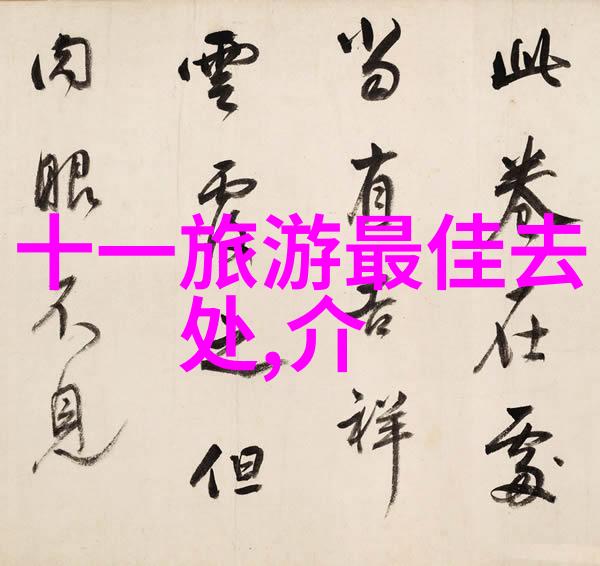 十一旅游最佳去
处,介
此卷在處
当有吉祥
雲覆之但
肉眼不見